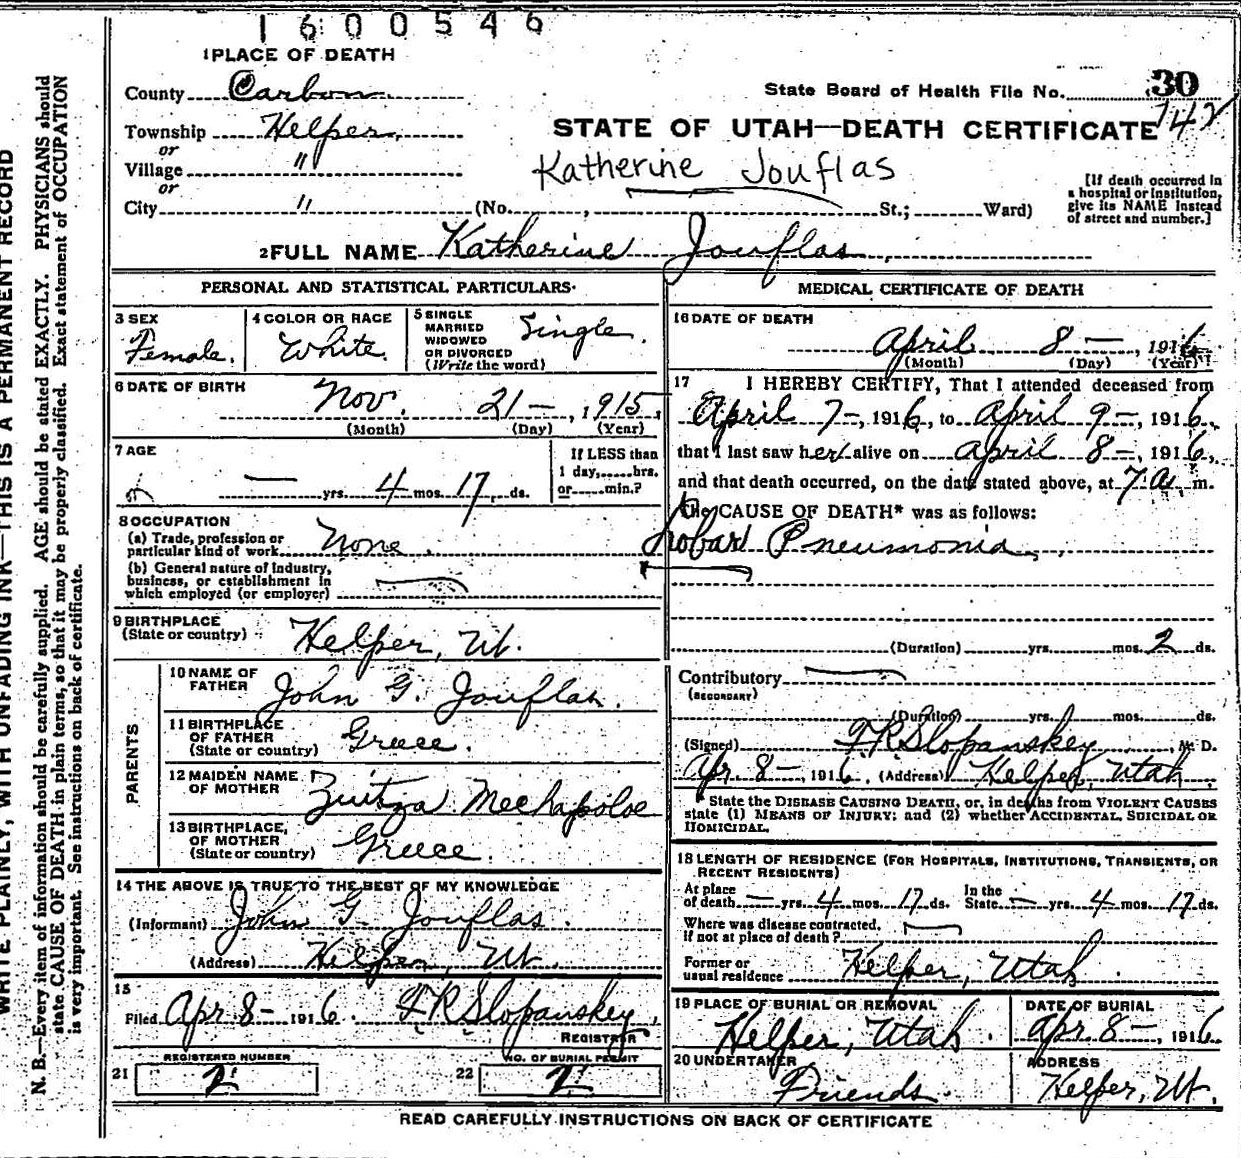 1600546
1 PLACE OF DEATH
County Carbon
State Board of Health File No. 30
142
Township Helper
STATE OF UTAH—DEATH CERTIFICATE
or
Village "
Katherine Jouflas
or
City " (No. , St.; Ward)
[If death occurred in
a hospital or institution,
give its NAME instead
of street and number.]
2 FULL NAME Katherine Jouflas
PERSONAL AND STATISTICAL PARTICULARS
3 SEX
Female.
4 COLOR OR RACE
White.
5 SINGLE
MARRIED
WIDOWED
OR DIVORCED
(Write the word)
Single.
6 DATE OF BIRTH
Nov. 21—, 1915.
(Month) (Day) (Year)
7 AGE
— yrs. 4 mos. 17 ds.
If LESS than
1 day, hrs.
or min.?
8 OCCUPATION
(a) Trade, profession or
particular kind of work None.
(b) General nature of Industry,
business, or establishment in
which employed (or employer)
9 BIRTHPLACE
(State or country) Helper, Ut.
PARENTS
10 NAME OF
FATHER John G. Jouflas.
11 BIRTHPLACE
OF FATHER
(State or country) Greece.
12 MAIDEN NAME
OF MOTHER Zuitza Mechapoloe
13 BIRTHPLACE,
OF MOTHER
(State or country) Greece.
14 THE ABOVE IS TRUE TO THE BEST OF MY KNOWLEDGE
(Informant) John G. Jouflas.
(Address) Helper, Ut.
15
Filed Apr. 8— 1916. F R Slopanskey,
REGISTRAR
REGISTERED NUMBER
21 2
NO. OF BURIAL PERMIT
22 2
MEDICAL CERTIFICATE OF DEATH
16 DATE OF DEATH
April 8—, 1916
(Month) (Day) (Year)
17 I HEREBY CERTIFY, That I attended deceased from
April 7—, 1916, to April 9—, 1916,
that I last saw her alive on April 8—, 1916,
and that death occurred, on the date stated above, at 7 a. m.
The CAUSE OF DEATH* was as follows:
Lobar Pneumonia.
(Duration) yrs. mos. 2 ds.
Contributory
(SECONDARY)
(Duration) yrs. mos. ds.
(Signed) F R Slopanskey, M. D.
Apr. 8—, 1916, (Address) Helper, Utah.
* State the DISEASE CAUSING DEATH, or, in deaths from VIOLENT CAUSES
state (1) MEANS OF INJURY; and (2) whether ACCIDENTAL, SUICIDAL OR
HOMICIDAL.
18 LENGTH OF RESIDENCE (FOR HOSPITALS, INSTITUTIONS, TRANSIENTS, OR
RECENT RESIDENTS)
At place
of death — yrs. 4 mos. 17 ds.
In the
State — yrs. 4 mos. 17 ds.
Where was disease contracted,
If not at place of death?
Former or
usual residence Helper, Utah.
19 PLACE OF BURIAL OR REMOVAL
Helper, Utah.
DATE OF BURIAL
Apr. 8—, 1916.
20 UNDERTAKER
Friends.
ADDRESS
Helper, Ut.
READ CAREFULLY INSTRUCTIONS ON BACK OF CERTIFICATE
WRITE PLAINLY, WITH UNFADING INK—THIS IS A PERMANENT RECORD
N. B.—Every item of information should be carefully supplied. AGE should be stated EXACTLY. PHYSICIANS should
state CAUSE OF DEATH in plain terms, so that it may be properly classified. Exact statement of OCCUPATION
is very important. See instructions on back of certificate.